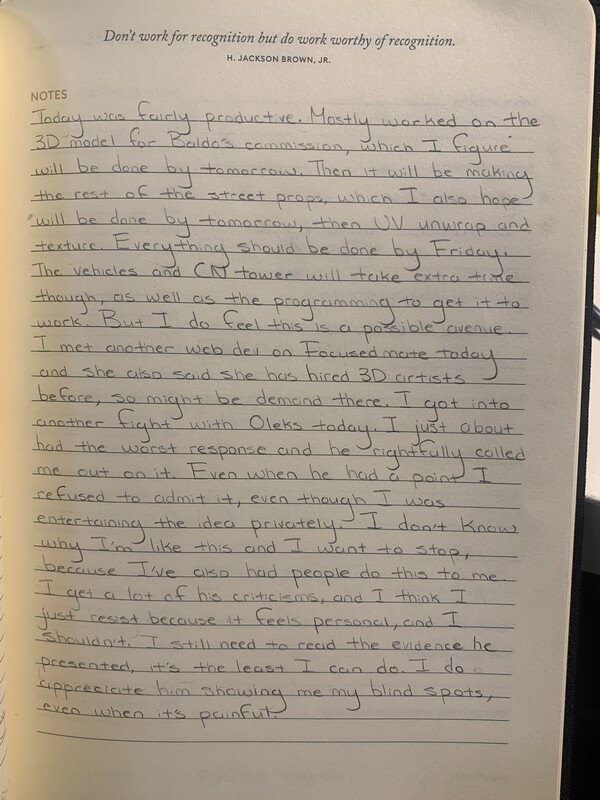 Don't work for recognition but do work worthy of recognition.
H. JACKSON BROWN, JR.
NOTES
Today was fairly productive. Mostly worked on the
3D model for Baldo's commission, which I figure
will be done by tomorrow. Then it will be making
the rest of the street props, which I also hope
will be done by tomorrow, then UV unwrap and
texture. Everything should be done by Friday.
The vehicles and CN tower will take extra time
though, as well as the programming to get it to
work. But I do feel this is a possible avenue.
I met another web dev on Focusedmate today
and she also said she has hired 3D artists
before, so might be demand there. I got into
another fight with Oleks today. I just about
had the worst response and he rightfully called
me out on it. Even when he had a point I
refused to admit it, even though I was
entertaining the idea privately. I don't know
why I'm like this and I want to stop,
because I've also had people do this to me.
I get a lot of his criticisms, and I think I
just resist because it feels personal, and I
shouldn't. I still need to read the evidence he
presented, it's the least I can do. I do
appreciate him showing me my blind spots,
even when it's painful.